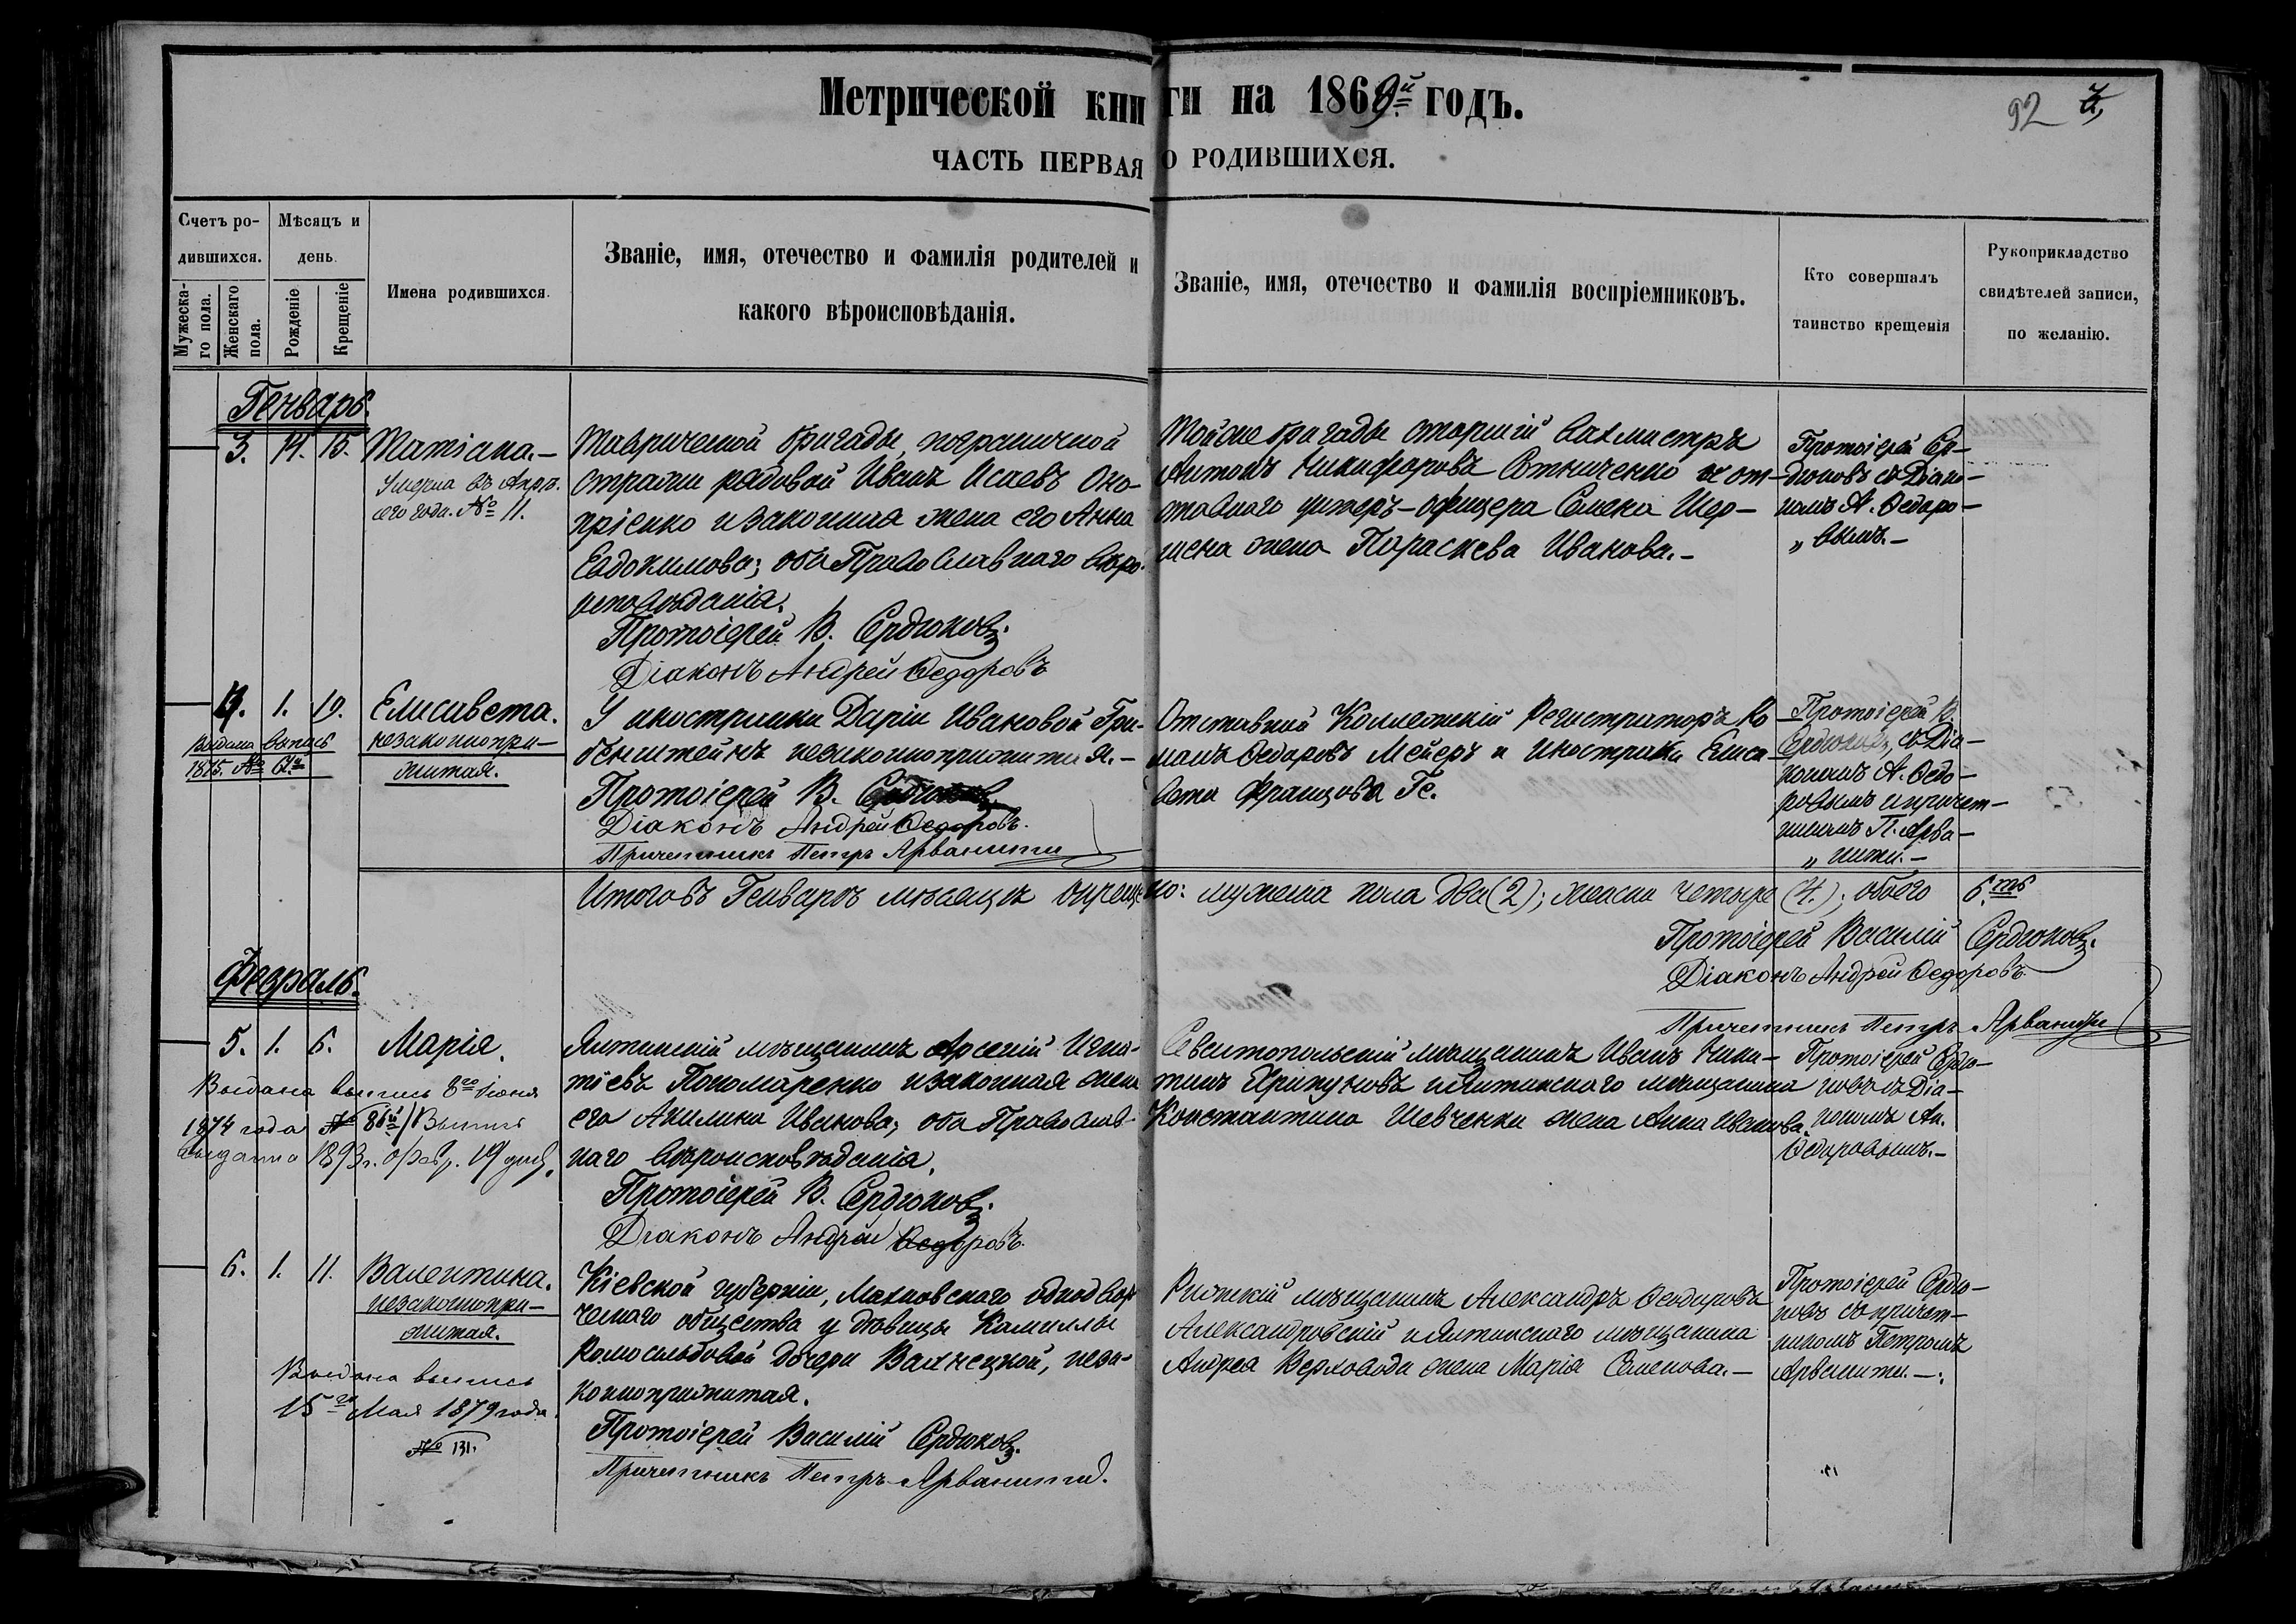 Метрической книги на 1869й годъ.
92
ЧАСТЬ ПЕРВАЯ О РОДИВШИХСЯ.
Счетъ родившихся.
Мужеска-
го пола.
Женскаго
пола.
Мѣсяцъ и
день
Рожденіе
Крещеніе
Имена родившихся.
Званіе, имя, отечество и фамилія родителей и
какого вѣроисповѣданія.
Званіе, имя, отечество и фамилія воспріемниковъ.
Кто совершалъ
таинство крещенія
Рукоприкладство
свидѣтелей записи,
по желанію.
Генварь.
3. 14. 15. Татіана.
Умерла въ Апр.
сего года. № 11.
Таврической бригады пограничной
стражи рядовой Иванъ Исаевъ Оно-
пріенко и законная жена его Анна
Евдокимова; оба Православнаго вѣро-
исповѣданія.
Протоіерей В. Сердюковъ.
Діаконъ Андрей Ѳедоровъ
Той же бригады старшій вахмистръ
Антонъ Никифоровъ Сотниченко и от-
ставнаго унтеръ-офицера Семена
жена Параскева Иванова.
Протоіерей Сер-
дюковъ съ Діако-
номъ А. Ѳедоро-
„ вымъ.
4. 1. 19. Елисавета.
незаконнопри-
житая.
Выдана выпись
1875. №
У иностранки Даріи Ивановой Гри-
бенштейнъ незаконноприжитая.
Протоіерей В. Сердюковъ
Діаконъ Андрей Ѳедоровъ.
Причетникъ Петръ Арванити
Отставной Коллежскій Регистраторъ Ро-
манъ Ѳедоровъ Мейеръ и иностранка Елиса-
вета Францова Ге.
Протоіерей В.
Сердюковъ, съ Діа-
кономъ А. Ѳедо-
ровымъ и причет-
никомъ П. Арва-
„ нити.
Итого въ Генварѣ мѣсяцѣ окрещено: мужеска пола два (2); женска четыре (4.); обоего 6.ть
Протоіерей Василій Сердюковъ.
Діаконъ Андрей Ѳедоровъ
Причетникъ Петръ Арванити
Февраль.
5. 1. 6. Марія.
Выдана выпись 8го Іюня
1874 года № 86й / Выпись
выдана 1893 г. Февр. 19 дня.
Ялтинскій мѣщанинъ Арсеній Игна-
тіевъ Пономаренко и законная жена
его Акилина Иванова; оба Православ-
наго вѣроисповѣданія.
Протоіерей В. Сердюковъ.
Діаконъ Андрей Ѳедоровъ.
Севастопольскій мѣщанинъ Иванъ Ники-
тинъ Хрипуновъ и Ялтинскаго мѣщанина
Константина Шевченки жена Анна Иванова.
Протоіерей Сердю-
ковъ съ Діа-
кономъ Ан.
Ѳедоровымъ.
6. 1. 11. Валентина.
незаконнопри-
житая.
Выдана выпись
15го Мая 1879 года.
№ 131.
Кіевской губерніи, Махновскаго однодвор-
ческаго общества у дѣвицы Камиллы
Ромоальдовой дочери Вахнецкой, неза-
коноприжитая.
Протоіерей Василій Сердюковъ.
Причетникъ Петръ Арванити.
Рижскій мѣщанинъ Александръ Ѳеодоровъ
Александровскій и Ялтинскаго мѣщанина
Андрея Верховода жена Марія Семенова.
Протоіерей Сердю-
ковъ съ причет-
никомъ Петромъ
Арванити.